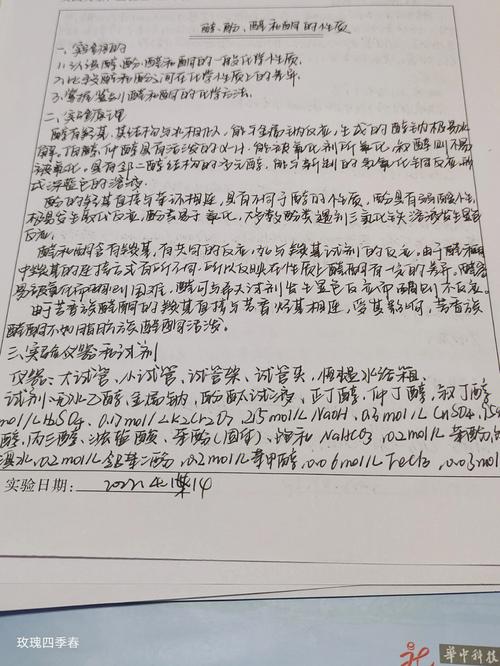 醇、酚、醛和酮的性质
一、实验目的
1.认识醇、酚、醛和酮的一般化学性质.
2.比较醇和酚之间在化学性质上的差异.
3.掌握鉴别醛和酮的化学方法.
二、实验原理
醇有羟基，其结构与水相似，能与金属钠反应，生成的醇钠极易水
解。伯醇、仲醇具有活泼的α-H，能被氧化剂所氧化，叔醇则不易
被氧化。具有邻二醇结构的多元醇，能与新制的氢氧化铜反应，形
成深蓝色的溶液。
酚的羟基直接与苯环相连，具有不同于醇的性质，酚具有弱酸性，
极易发生取代反应，酚类易于氧化，大多数酚类遇到三氯化铁溶液发生显色
反应。
醛和酮含有羰基，有共同的反应，如与羰基试剂的反应。由于醛和酮
中羰基的连接方式有所不同，所以反映在性质上醛酮有一定的差异，醛容
易被氧化而酮则困难，醛可与希夫试剂发生显色反应而酮则不反应。
由于芳香族醛酮的羰基直接与芳香烃基相连，受其影响，芳香族
醛酮不如脂肪族醛酮活泼。
三、实验仪器和试剂
仪器：大试管、小试管、试管架、试管夹、恒温水浴箱.
试剂：无水乙醇、金属钠、酚酞试液、正丁醇、仲丁醇、叔丁醇
mol/L H₂SO₄、0.17mol/L K₂Cr₂O₇、2.5mol/L NaOH、0.3mol/L CuSO₄、95%
醇、丙三醇、浓盐酸、苯酚(固体)、饱和NaHCO₃、0.2mol/L 苯酚、饱
溴水、0.2mol/L 邻苯二酚、0.2mol/L 苯甲醇、0.06mol/L FeCl₃、0.03mol
实验日期：
玫瑰四季春
华中科技